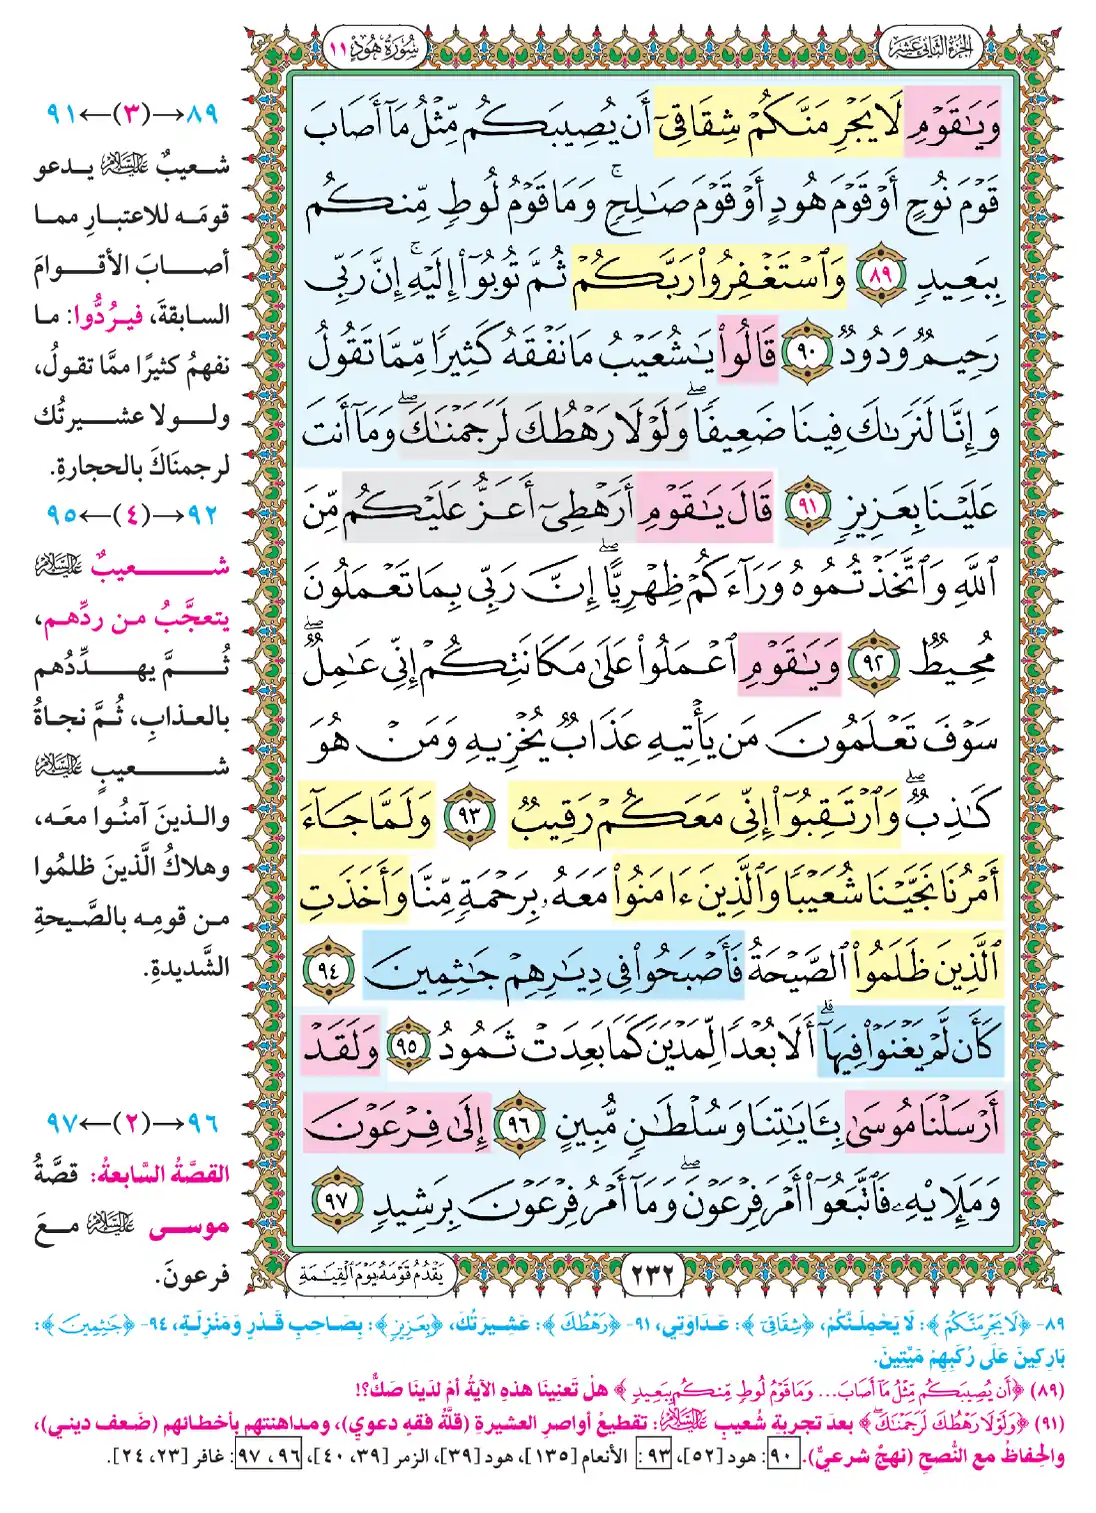 الجزء الثاني عشر
سُورَةُ هُودٍ ١١
وَيَٰقَوۡمِ لَا يَجۡرِمَنَّكُمۡ شِقَاقِيٓ أَن يُصِيبَكُم مِّثۡلُ مَآ أَصَابَ
قَوۡمَ نُوحٍ أَوۡ قَوۡمَ هُودٍ أَوۡ قَوۡمَ صَٰلِحٖۚ وَمَا قَوۡمُ لُوطٖ مِّنكُم
بِبَعِيدٖ ٨٩ وَٱسۡتَغۡفِرُواْ رَبَّكُمۡ ثُمَّ تُوبُوٓاْ إِلَيۡهِۚ إِنَّ رَبِّي
رَحِيمٞ وَدُودٞ ٩٠ قَالُواْ يَٰشُعَيۡبُ مَا نَفۡقَهُ كَثِيرٗا مِّمَّا تَقُولُ
وَإِنَّا لَنَرَىٰكَ فِينَا ضَعِيفٗاۖ وَلَوۡلَا رَهۡطُكَ لَرَجَمۡنَٰكَۖ وَمَآ أَنتَ
عَلَيۡنَا بِعَزِيزٖ ٩١ قَالَ يَٰقَوۡمِ أَرَهۡطِيٓ أَعَزُّ عَلَيۡكُم مِّنَ
ٱللَّهِ وَٱتَّخَذۡتُمُوهُ وَرَآءَكُمۡ ظِهۡرِيًّاۖ إِنَّ رَبِّي بِمَا تَعۡمَلُونَ
مُحِيطٞ ٩٢ وَيَٰقَوۡمِ ٱعۡمَلُواْ عَلَىٰ مَكَانَتِكُمۡ إِنِّي عَٰمِلٞۖ
سَوۡفَ تَعۡلَمُونَ مَن يَأۡتِيهِ عَذَابٞ يُخۡزِيهِ وَمَنۡ هُوَ
كَٰذِبٞۖ وَٱرۡتَقِبُوٓاْ إِنِّي مَعَكُمۡ رَقِيبٞ ٩٣ وَلَمَّا جَآءَ
أَمۡرُنَا نَجَّيۡنَا شُعَيۡبٗا وَٱلَّذِينَ ءَامَنُواْ مَعَهُۥ بِرَحۡمَةٖ مِّنَّا وَأَخَذَتِ
ٱلَّذِينَ ظَلَمُواْ ٱلصَّيۡحَةُ فَأَصۡبَحُواْ فِي دِيَٰرِهِمۡ جَٰثِمِينَ ٩٤
كَأَن لَّمۡ يَغۡنَوۡاْ فِيهَآۗ أَلَا بُعۡدٗا لِّمَدۡيَنَ كَمَا بَعِدَتۡ ثَمُودُ ٩٥ وَلَقَدۡ
أَرۡسَلۡنَا مُوسَىٰ بِـَٔايَٰتِنَا وَسُلۡطَٰنٖ مُّبِينٍ ٩٦ إِلَىٰ فِرۡعَوۡنَ
وَمَلَإِيْهِۦ فَٱتَّبَعُوٓاْ أَمۡرَ فِرۡعَوۡنَۖ وَمَآ أَمۡرُ فِرۡعَوۡنَ بِرَشِيدٖ ٩٧
٢٣٢
يَقۡدُمُ قَوۡمَهُۥ يَوۡمَ ٱلۡقِيَٰمَةِ
٨٩→(٣)←٩١
شعيبٌ عليه السلام يدعو
قومَه للاعتبارِ مما
أصابَ الأقوامَ
السابقةَ، فيرُدُّوا: ما
نفهمُ كثيرًا ممَّا تقولُ،
ولولا عشيرتُك
لرجمنَاكَ بالحجارةِ.
٩٢→(٤)←٩٥
شعيبٌ عليه السلام
يتعجَّبُ من ردِّهم،
ثُمَّ يهدِّدُهم
بالعذابِ، ثُمَّ نجاةُ
شعيبٍ عليه السلام
والذينَ آمنُوا معَه،
وهلاكُ الَّذينَ ظلمُوا
من قومِه بالصَّيحةِ
الشَّديدةِ.
٩٦→(٢)←٩٧
القصَّةُ السَّابعةُ: قصَّةُ
موسى عليه السلام معَ
فرعونَ.
٨٩- ﴿لَا يَجْرِمَنَّكُمْ﴾: لَا يَحْمِلَنَّكُمْ، ﴿شِقَاقِيٓ﴾: عَدَاوَتِي، ٩١- ﴿رَهْطُكَ﴾: عَشِيرَتُكَ، ﴿بِعَزِيزٍ﴾: بِصَاحِبِ قَدْرٍ وَمَنْزِلَةٍ، ٩٤- ﴿جَٰثِمِينَ﴾:
بَارِكِينَ عَلَى رُكَبِهِمْ مَيِّتِينَ.
(٨٩) ﴿أَن يُصِيبَكُم مِّثْلُ مَآ أَصَابَ... وَمَا قَوْمُ لُوطٍ مِّنكُم بِبَعِيدٍ﴾ هلْ تَعنِينَا هذهِ الآيةُ أمْ لدَينَا صَكٌّ؟!
(٩١) ﴿وَلَوْلَا رَهْطُكَ لَرَجَمْنَٰكَ﴾ بعدَ تجربةِ شُعيبٍ عليه السلام: تقطيعُ أواصرِ العشيرةِ (قلَّةُ فقهٍ دعوي)، ومداهنتهم بأخطائهم (ضَعف ديني)،
والحِفاظُ مع النُّصحِ (نهجٌ شرعيٌّ). ٩٠: هود [٥٢]، ٩٣: الأنعام [١٣٥]، هود [٣٩]، الزمر [٣٩، ٤٠]، ٩٦، ٩٧: غافر [٢٣، ٢٤].